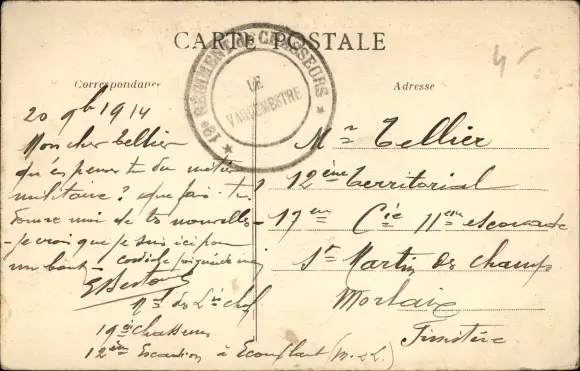 CARTE POSTALE
19e RÉGIMENT DE CHASSEURS
LE
VAGUEMESTRE
Correspondance
Adresse
20 9b 1914
Mon cher Tellier
qu'en penses tu du métier
militaire? que fais tu
donne moi de tes nouvelles
- je crois que je suis ici pour
un bout - cordiale poignée de main
Mr Tellier
12ème territorial
17em Cie 11em escouade
St Martin des Champs
Morlaix
Finistère
Mal des Lis chef
19e chasseurs
12ème Escadron à Ecouflant (M. & L.)